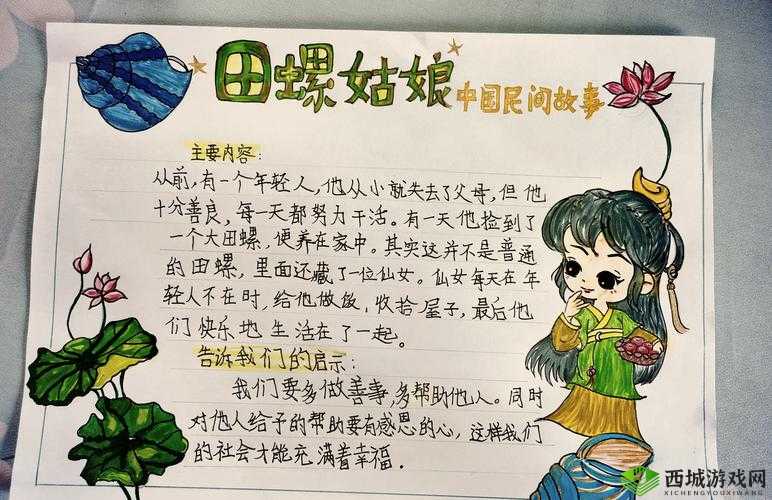 田螺姑娘 中国民间故事
主要内容:
从前,有一个年轻人,他从小就失去了父母,但他
十分善良,每一天都努力干活。有一天他捡到了
一个大田螺,便养在家中。其实这并不是普通
的田螺,里面还藏了一位仙女。仙女每天在年
轻人不在时,给他做饭,收拾屋子,最后他
们快乐地生活在了一起。
告诉我们的启示:
我们要多做善事,多帮助他人。同时
对他人给予的帮助要有感恩的心,这样我们
的社会才能充满着幸福.
西城游戏网
XICHENGYOUXIWANG